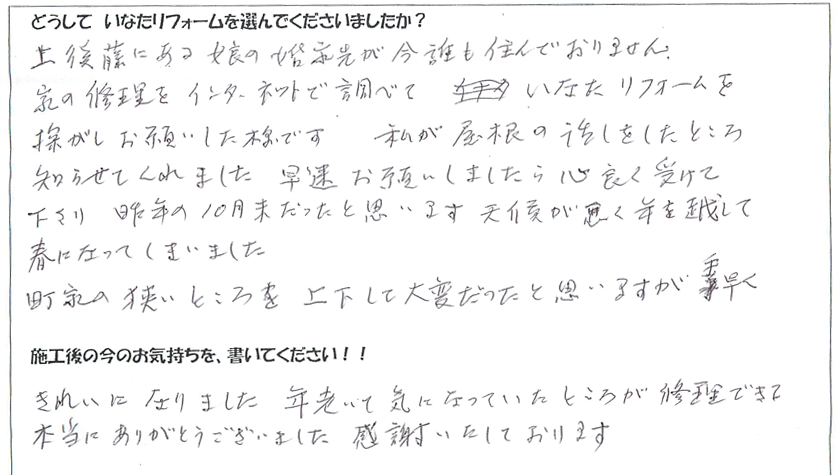 どうして いなたリフォームを選んでくださいましたか？
上後藤にある娘の婚家先が今誰も住んでおりません.
家の修理をインターネットで調べて いなたリフォームを
探がしお願いした様です 私が屋根の話しをしたところ
知らせてくれました 早速お願いしましたら心良く受けて
下さり 昨年の10月末だったと思います 天候が悪く年を越して
春になってしまいました
町家の狭いところを 上下して大変だったと思いますが 手早く
施工後の今のお気持ちを、書いてください！！
きれいに なりました 年老いて気になっていたところが修理できて
本当にありがとうございました 感謝いたしております